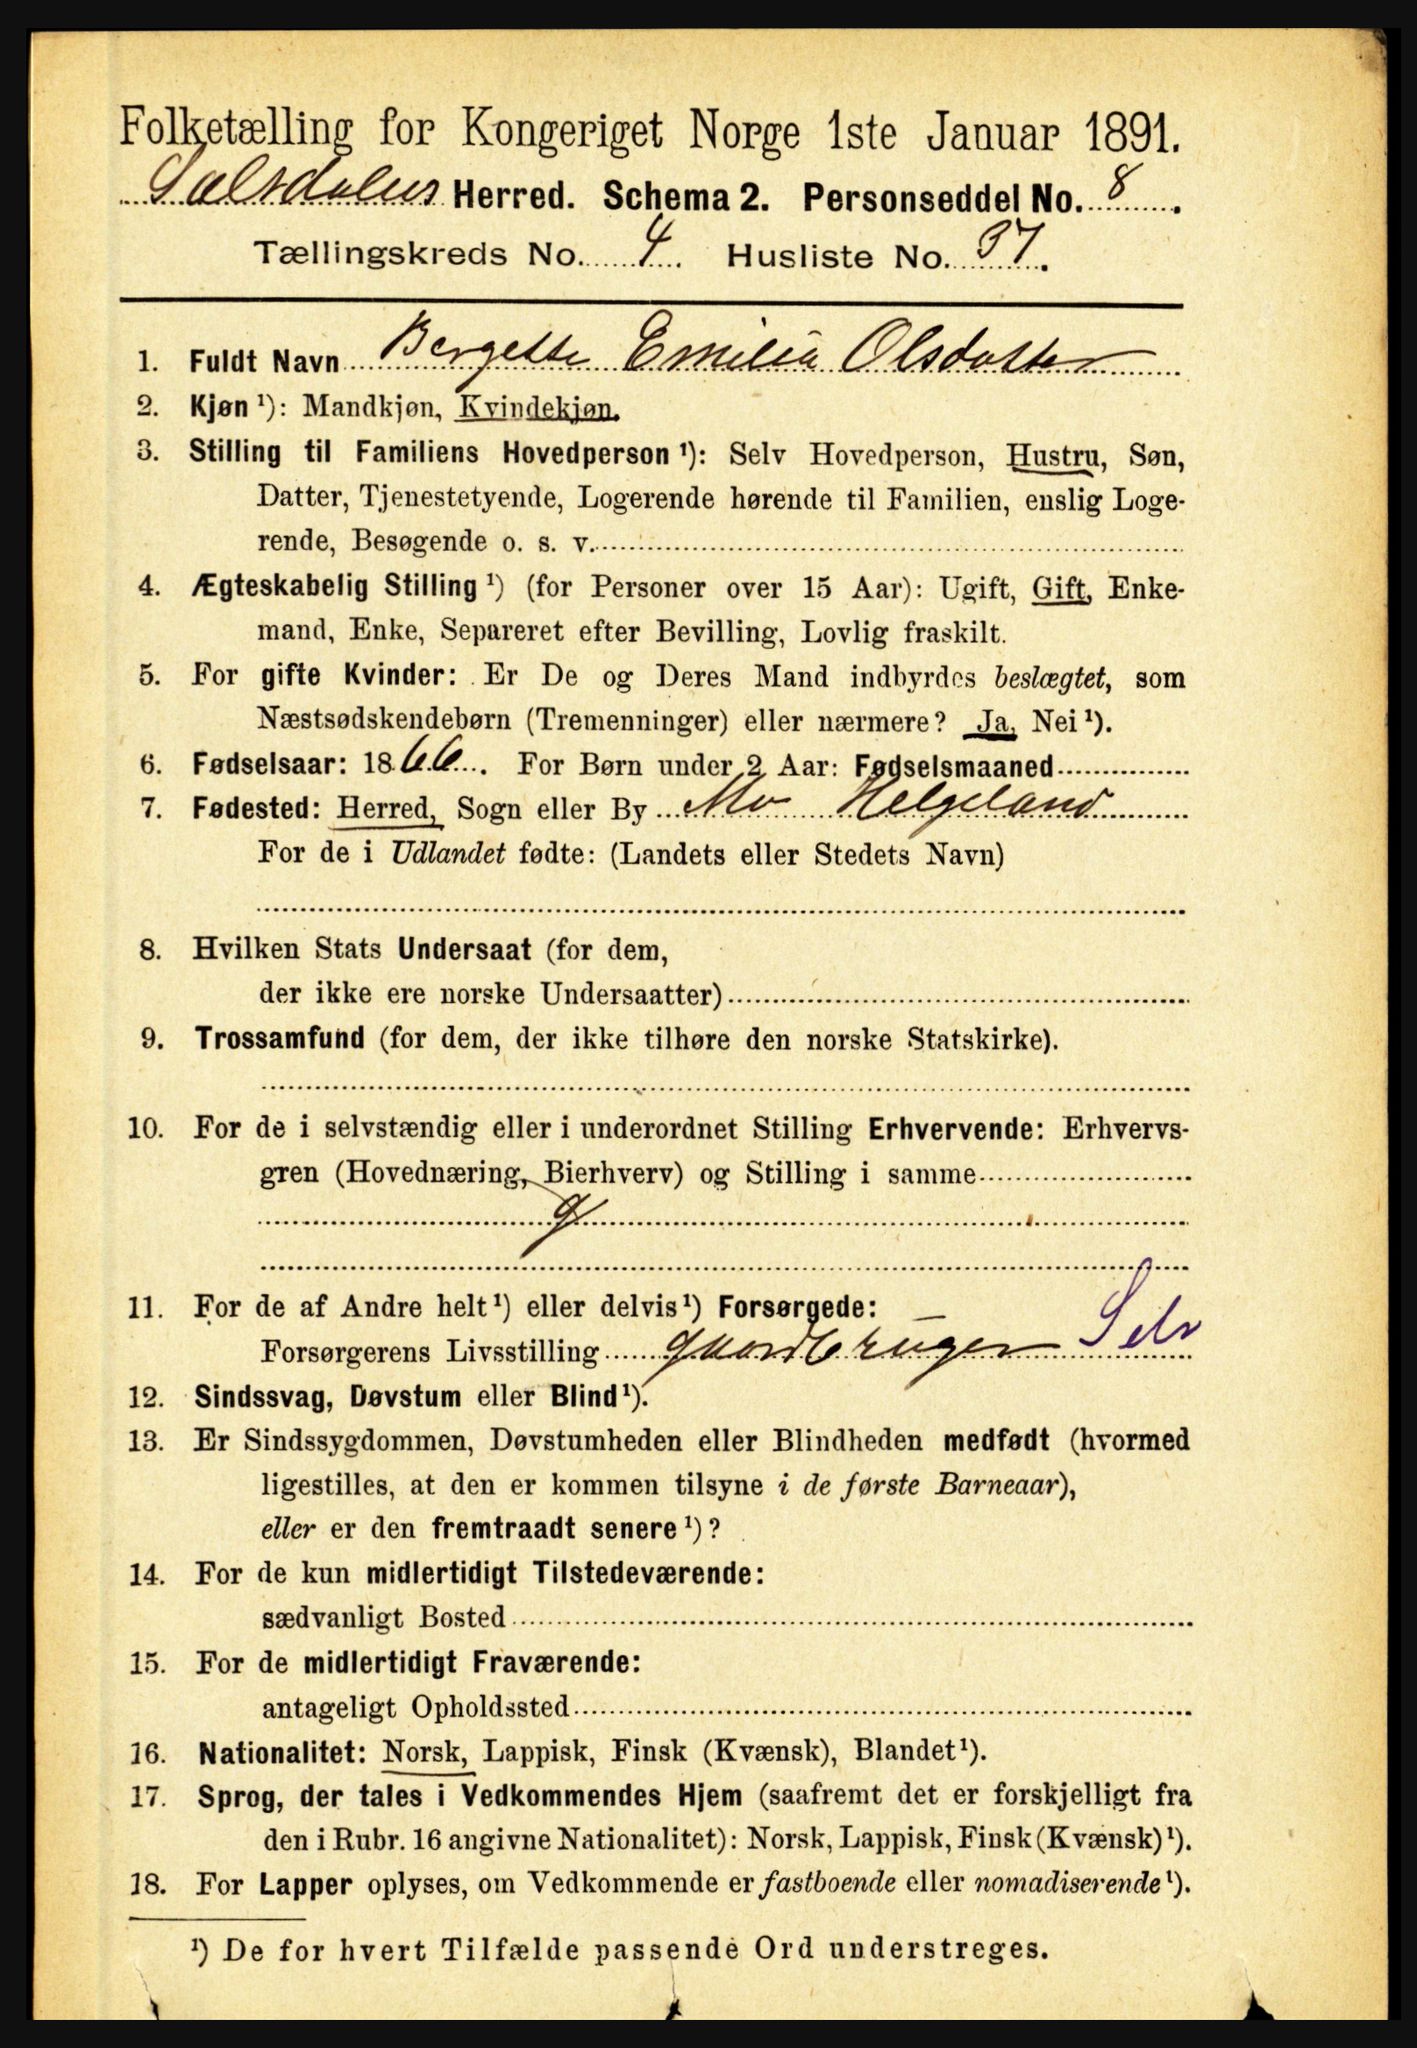 Folketælling for Kongeriget Norge 1ste Januar 1891.
Saltdalens Herred. Schema 2. Personseddel No. 8.
Tællingskreds No. 4. Husliste No. 37.
1. Fuldt Navn Bergette Emilia Olsdatter
2. Kjøn ¹): Mandkjøn, Kvindekjøn.
3. Stilling til Familiens Hovedperson ¹): Selv Hovedperson, Hustru, Søn,
Datter, Tjenestetyende, Logerende hørende til Familien, enslig Loge-
rende, Besøgende o. s. v.
4. Ægteskabelig Stilling ¹) (for Personer over 15 Aar): Ugift, Gift, Enke-
mand, Enke, Separeret efter Bevilling, Lovlig fraskilt.
5. For gifte Kvinder: Er De og Deres Mand indbyrdes beslægtet, som
Næstsødskendebørn (Tremenninger) eller nærmere? Ja, Nei ¹).
6. Fødselsaar: 1866. For Børn under 2 Aar: Fødselsmaaned
7. Fødested: Herred, Sogn eller By Mo Helgeland
For de i Udlandet fødte: (Landets eller Stedets Navn)
8. Hvilken Stats Undersaat (for dem,
der ikke ere norske Undersaatter)
9. Trossamfund (for dem, der ikke tilhøre den norske Statskirke).
10. For de i selvstændig eller i underordnet Stilling Erhvervende: Erhvervs-
gren (Hovednæring, Bierhverv) og Stilling i samme
g
11. For de af Andre helt ¹) eller delvis ¹) Forsørgede:
Forsørgerens Livsstilling gaardbruger Selv
12. Sindssvag, Døvstum eller Blind ¹).
13. Er Sindssygdommen, Døvstumheden eller Blindheden medfødt (hvormed
ligestilles, at den er kommen tilsyne i de første Barneaar),
eller er den fremtraadt senere ¹)?
14. For de kun midlertidigt Tilstedeværende:
sædvanligt Bosted
15. For de midlertidigt Fraværende:
antageligt Opholdssted
16. Nationalitet: Norsk, Lappisk, Finsk (Kvænsk), Blandet ¹).
17. Sprog, der tales i Vedkommendes Hjem (saafremt det er forskjelligt fra
den i Rubr. 16 angivne Nationalitet): Norsk, Lappisk, Finsk (Kvænsk) ¹).
18. For Lapper oplyses, om Vedkommende er fastboende eller nomadiserende ¹).
¹) De for hvert Tilfælde passende Ord understreges.